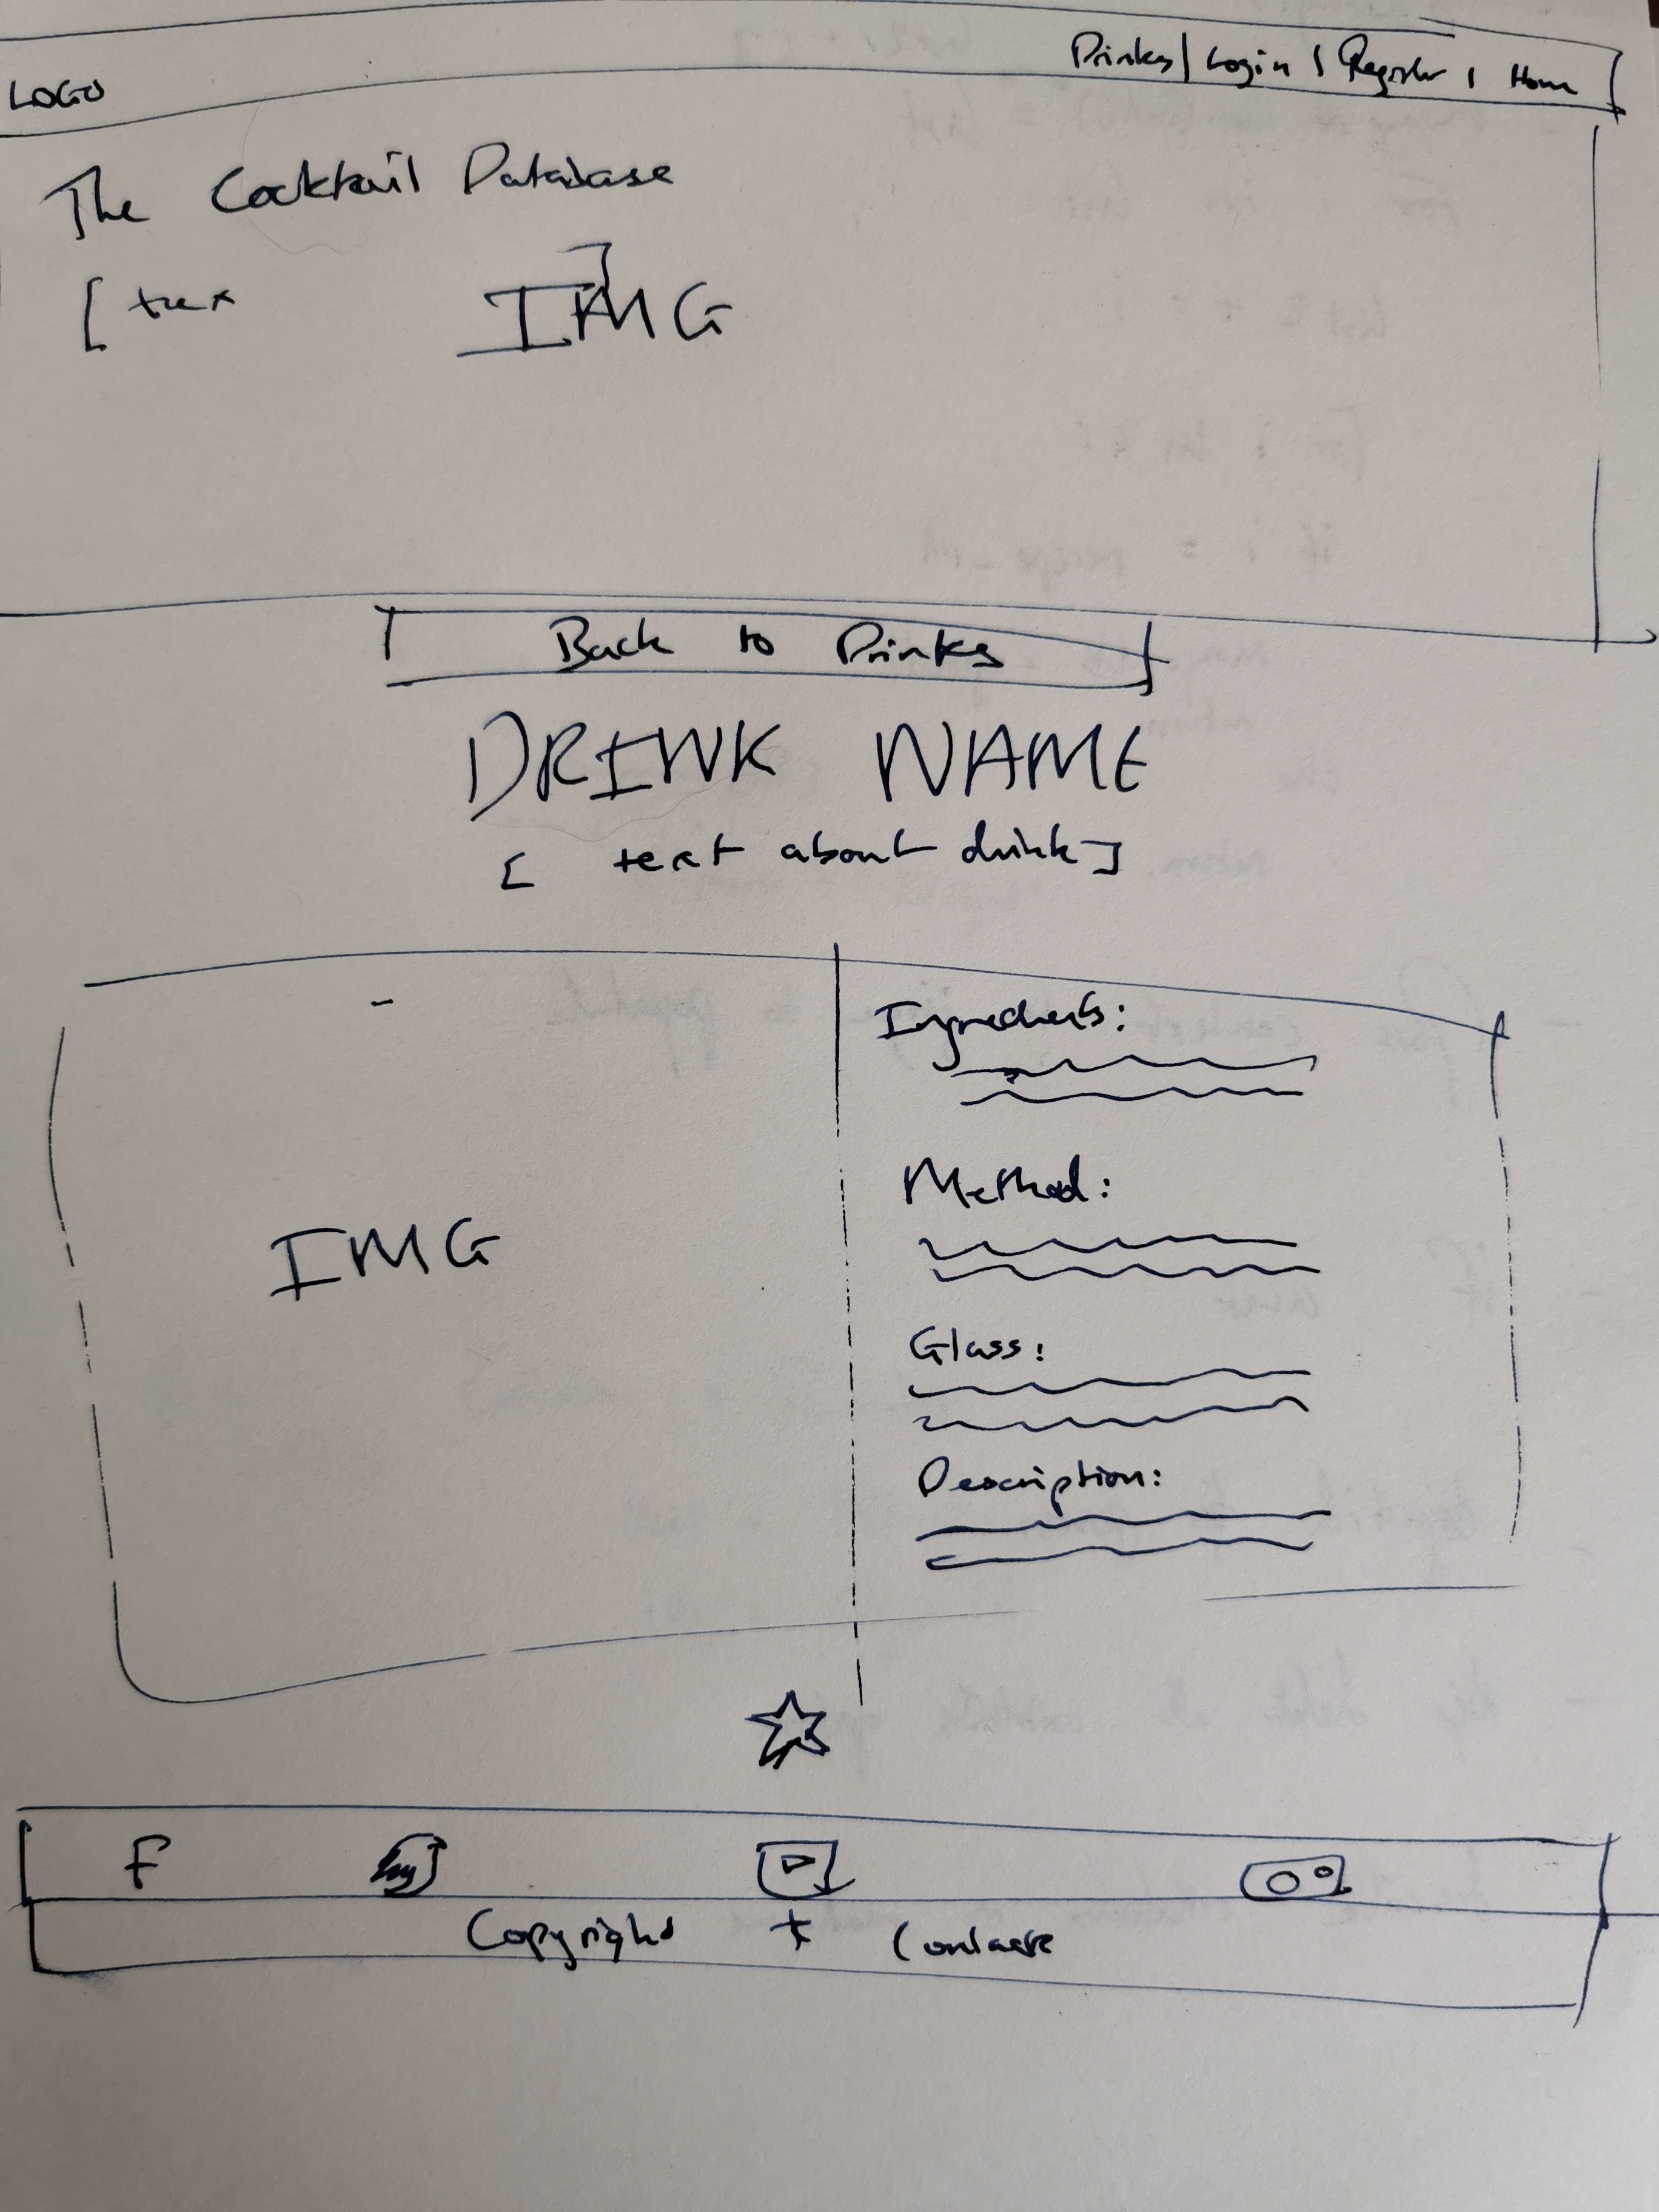 LOGO
Drinks | Login | Register | Home
The Cocktail Database
[ text ]
IMG
Back to Drinks
DRINK NAME
[ text about drink ]
IMG
Ingredients:
Method:
Glass:
Description:
f
Copyright + Contact